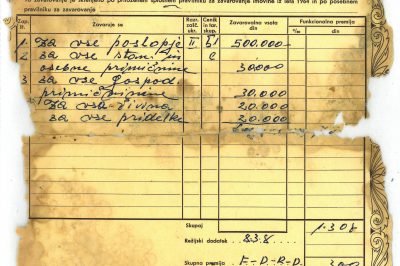 To zavarovanje je sklenjeno po priloženem splošnem pravilniku za zavarovanje imovine iz leta 1964 in po posebnem
pravilniku za zavarovanje
Zap. št. Zavaruje se Raz. zašč. ukr. Cenik in tar. skup. Zavarovalna vsota din Funkcionalna premija
‰ din
1. Za vse poslopje II. b1 500.000
2. Za vse stan. in c
osebne premičnine 30.000
3. za vse gospod.
premičnine 30.000
Za vsa živina 20.000
za vse pridelke 20.000
Skupaj 1.308
Režijski dodatek 23%
Skupna premija 300